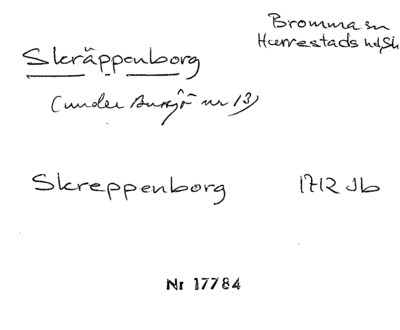 Bromma sn
Herrestads hd, Sk
Skräppenborg
(under Bursjö nr 13)
Skreppenborg 1712 Jb
Nr 17784